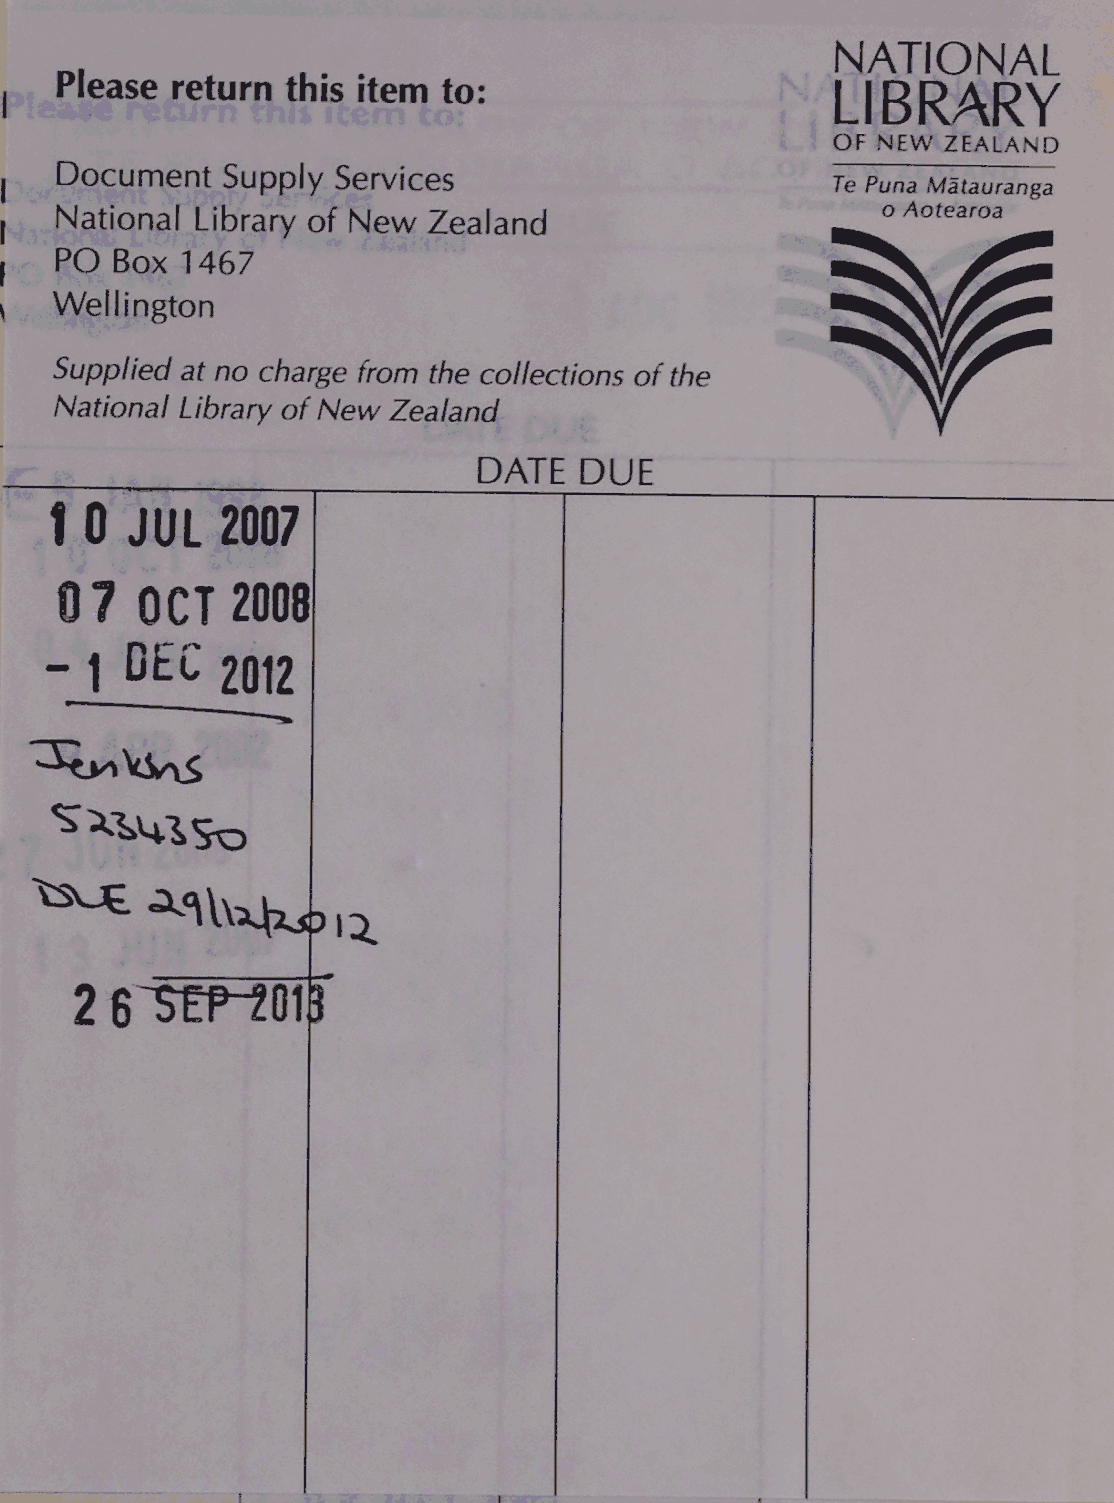 Please return this item to:
Document Supply Services
National Library of New Zealand
PO Box 1467
Wellington
Supplied at no charge from the collections of the
National Library of New Zealand
NATIONAL
LIBRARY
OF NEW ZEALAND
Te Puna Mātauranga
o Aotearoa
DATE DUE
10 JUL 2007
07 OCT 2008
- 1 DEC 2012
Jenkins
5234350
DUE 29/12/2012
26 SEP 2013